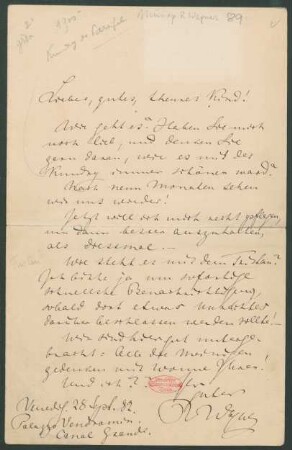 89
Liebes, gutes, theures Kind!
Wie geht es? Haben Sie mich
noch lieb, und denken Sie
gern daran, wie es mit der
Kundry immer schöner ward?
Nach neun Monaten sehen
wir uns wieder!
Jetzt will ich mich recht pflegen,
um dann besser auszuhalten,
als diessmal. —
Wie steht es mit dem Tristan?
Ich bitte ja um sofortige
schnellste Benachrichtigung,
sobald dort etwas
darüber beschlossen werden sollte! —
Wir sind hier gut untege-
bracht: Alle die Meinigen
gedenken mit Wonne Ihrer!
Und ich? Ihr
guter
R Wagner
Venedig 28 Sept. 82.
Palazzo Vendramin.
Canal Grande.